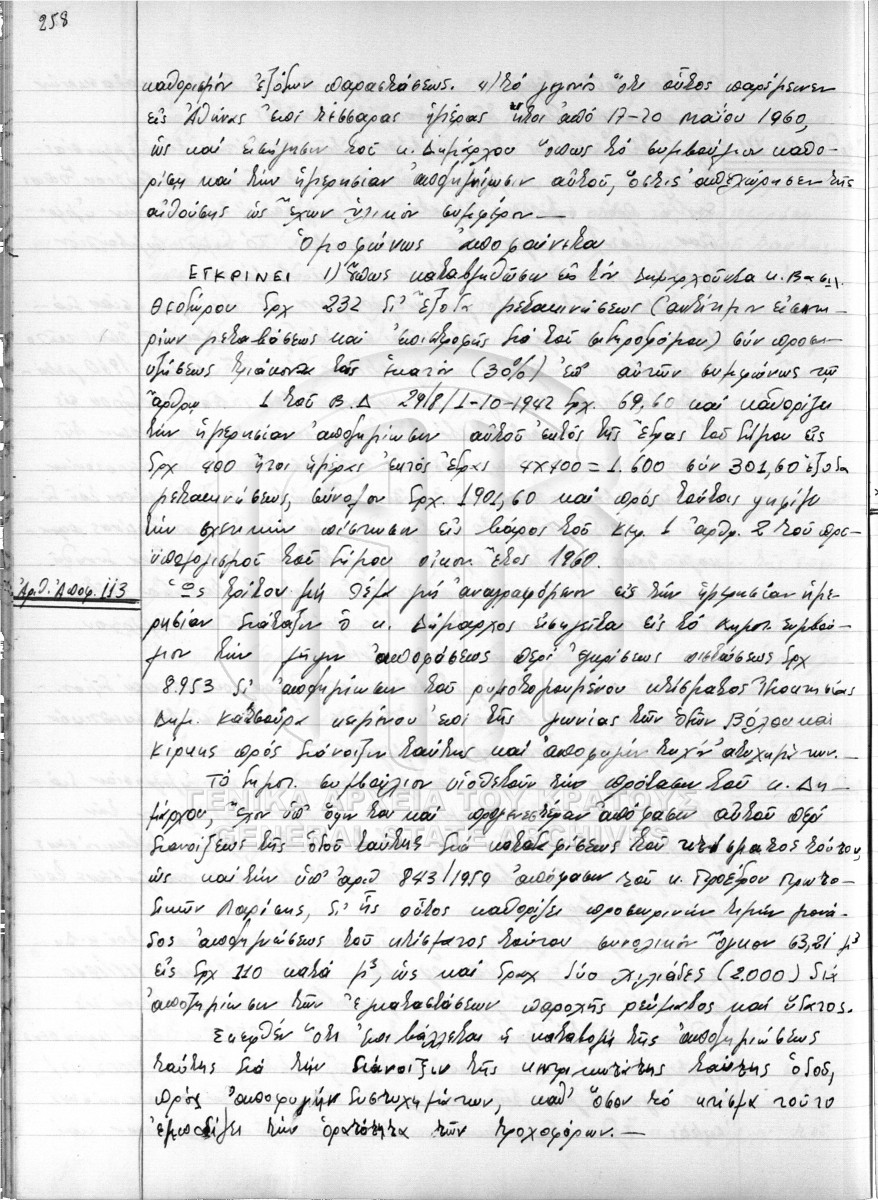 258
καθορισμόν ἐξόδων παραστάσεως. 4) τό γεγονός ὅτι οὗτος παρέμεινεν
εἰς Ἀθήνας ἐπί τέσσαρας ἡμέρας ἤτοι ἀπό 17-20 Μαΐου 1960,
ὡς καί εἰσήγησιν τοῦ κ. Δημάρχου ὅπως τό συμβούλιον καθο-
ρίσῃ καί τήν ἡμερησίαν ἀποζημίωσιν αὐτοῦ, ὅστις ἀπεχώρησεν τῆς
αἰθούσης ὡς ἔχων ὑλικόν συμφέρον.—
Ὁμοφώνως ἀποφαίνεται
ΕΓΚΡΙΝΕΙ 1) Ὅπως καταβληθῶσιν εἰς τόν Δημαρχοῦντα κ. Βασιλ.
Θεοδώρου δρχ 232 δι' ἔξοδα μετακινήσεως (ἀντίτιμον εἰσιτη-
ρίων μεταβάσεως καί ἐπιστροφῆς διά τοῦ σιδηροδρόμου) σύν προσ-
αυξήσεως τριάκοντα τοῖς ἑκατόν (30%) ἐπ' αὐτῶν συμφώνως τῷ
ἄρθρῳ 1 τοῦ Β.Δ 29/8/1-10-1942 δρχ. 69,60 καί καθορίζει
τήν ἡμερησίαν ἀποζημίωσιν αὐτοῦ ἐκτός τῆς ἕδρας τοῦ Δήμου εἰς
δρχ 400 ἤτοι ἡμέρας ἐκτός ἕδρας 4Χ400=1.600 σύν 301,60 ἔξοδα
μετακινήσεως, σύνολον δρχ. 1901,60 καί πρός τούτοις ψηφίζει
τήν σχετικήν πίστωσιν εἰς βάρος τοῦ Κεφ. 1 ἄρθρ. 2 τοῦ προ-
ϋπολογισμοῦ τοῦ Δήμου οἰκον. ἔτος 1960.
Ἀρθ. Ἀποφ. 113
Ὡς τρίτον θέμα μή ἀναγραφόμενον εἰς τήν ἡμερησίαν ἡμε-
ρησίαν διάταξιν ὁ κ. Δήμαρχος εἰσηγεῖται εἰς τό Δημοτ. Συμβού-
λιον τήν λῆψιν ἀποφάσεως περί ἐγκρίσεως πιστώσεως δρχ
8.953 δι' ἀποζημίωσιν τοῦ ρυμοτομουμένου κτίσματος ἰδιοκτησίας
Δημ. Κατσούρα κειμένου ἐπί τῆς γωνίας τῶν ὁδῶν Βόλου καί
Κίρκης πρός διάνοιξιν ταύτης καί ἀποφυγήν τυχόν ἀτυχημάτων.—
Τό δημοτ. συμβούλιον υἱοθετοῦν τήν πρότασιν τοῦ κ. Δη-
μάρχου, ἔχον ὑπ' ὄψιν του καί προγενεστέραν ἀπόφασιν αὐτοῦ περί
διανοίξεως τῆς ὁδοῦ ταύτης διά κατεδαφίσεως τοῦ κτίσματος τούτου,
ὡς καί τήν ὑπ' ἀριθ 843/1959 ἀπόφασιν τοῦ κ. Προέδρου Πρωτο-
δικῶν Λαρίσης, δι' ἧς οὗτος καθορίζει προσωρινήν τιμήν μονά-
δος ἀποζημιώσεως τοῦ κτίσματος τούτου συνολικόν ὄγκον 63,21 μ³
εἰς δρχ 110 κατά μ³, ὡς καί δραχ δύο χιλιάδες (2.000) διά
ἀποζημίωσιν τῶν ἐγκαταστάσεων παροχῆς ρεύματος καί ὕδατος.
Σκεφθέν ὅτι ἐπιβάλλεται ἡ καταβολή τῆς ἀποζημιώσεως
ταύτης διά τήν διάνοιξιν τῆς κεντρικωτάτης ταύτης ὁδοῦ,
πρός ἀποφυγήν δυστυχημάτων, καθ' ὅσον τό κτίσμα τοῦτο
ἐμποδίζει τήν ὁρατότητα τῶν τροχοφόρων.—
ΓΕΝΙΚΑ ΑΡΧΕΙΑ ΤΟΥ ΚΡΑΤΟΥΣ
GENERAL STATE ARCHIVES